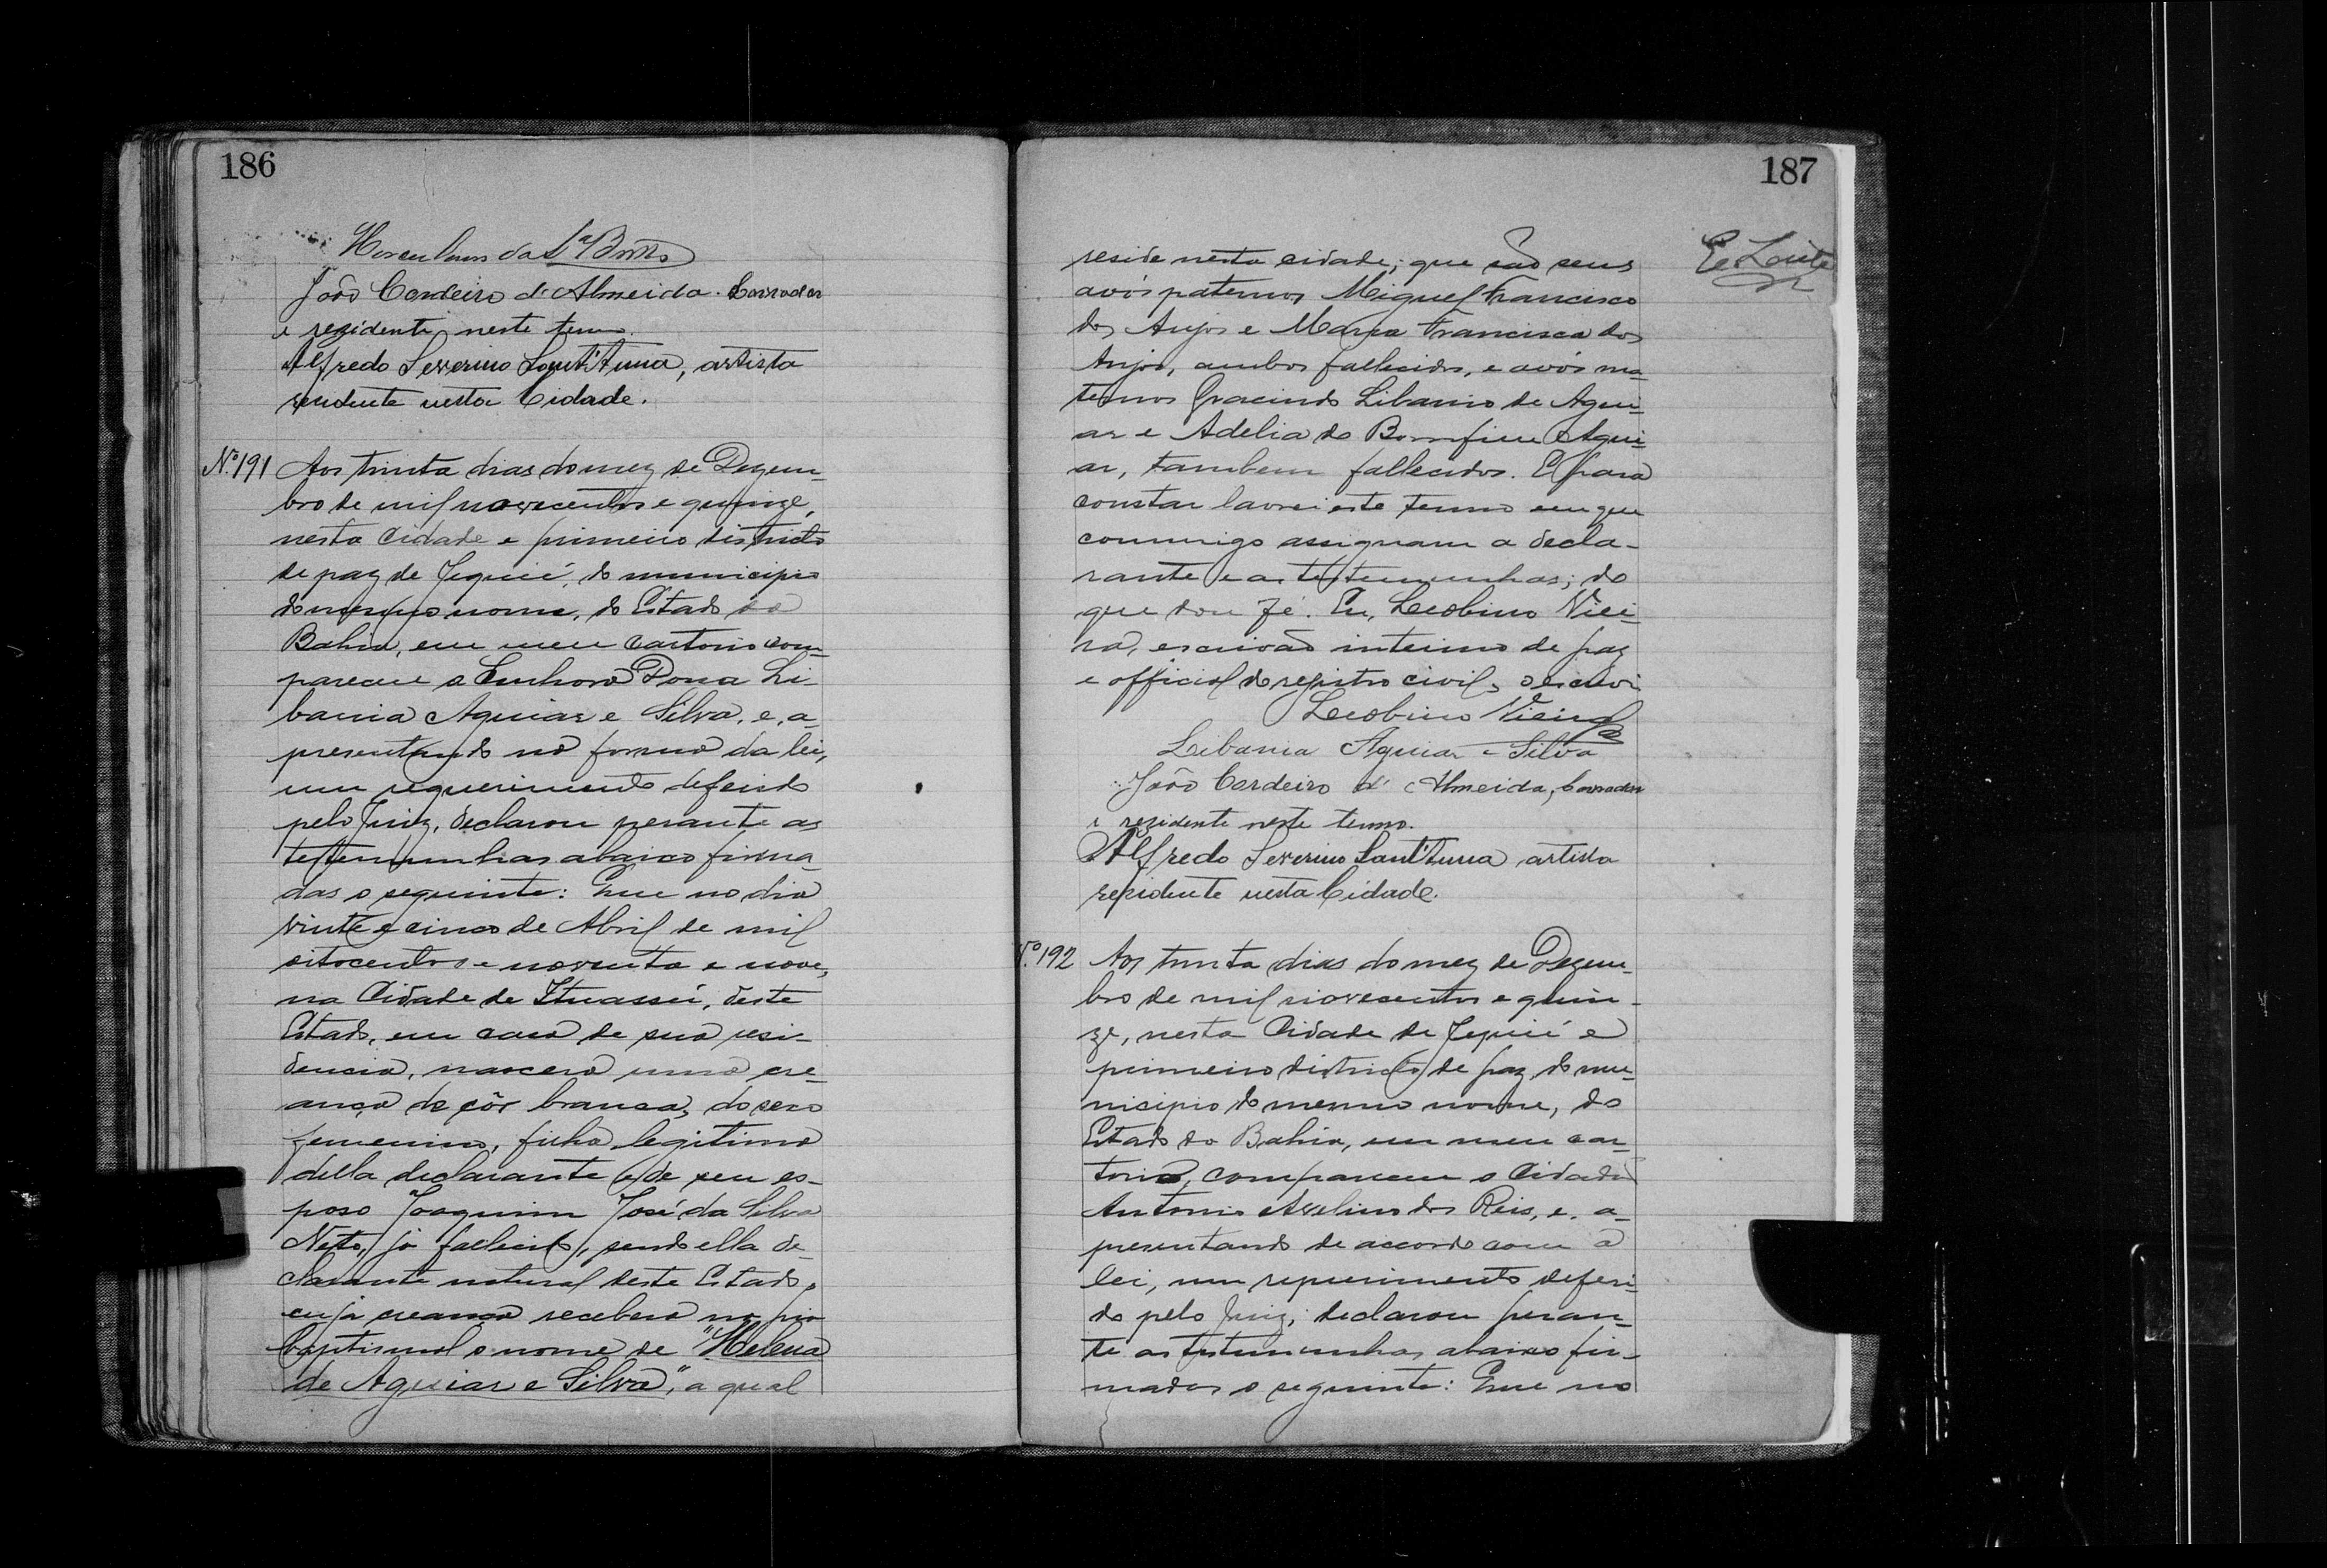 186
Herculano da Sª Britto
João Cordeiro d'Almeida. Lavrador
e rezidente neste termo.
Alfredo Severino Sant'Anna, artista
residente nesta Cidade.
Nº 191 Aos trinta dias do mez de Dezem-
bro de mil novecentos e quinze,
nesta Cidade e primeiro districto
de paz de Jequié, do municipio
do mesmo nome, do Estado da
Bahia, em meu cartorio com-
pareceu a Senhora Dona Li-
bania Aguiar e Silva, e, a-
presentando na forma da lei,
um requerimento deferido
pelo Juiz, declarou perante as
testemunhas abaixo firma-
das o seguinte: Que no dia
vinte e cinco de Abril de mil
oitocentos e noventa e nove,
na Cidade de Ituassú, deste
Estado, em casa de sua resi-
dencia, nascera uma cre-
ança de côr branca, do sexo
femenino, filha legitima
della declarante e de seu es-
poso Joaquim José da Silva
Netto, já fallecido, sendo ella de-
clarante natural deste Estado,
cuja creança recebera na pia
baptismal o nome de "Helena
de Aguiar e Silva", a qual
187
reside nesta cidade; que são seus
avós paternos Miguel Francisco
dos Anjos e Maria Francisca dos
Anjos, ambos fallecidos, e avós ma-
ternos Gracindo Libanio de Agui-
ar e Adelia do Bomfim Agui-
ar, tambem fallecidos. E para
constar lavrei este termo em que
commigo assignam a decla-
rante e as testemunhas; do
que dou fé. Eu, Leobino Viei-
ra, escrivão interino de paz
e official do registro civil, o escrevi
Leobino Vieira
Libania Aguiar e Silva
João Cordeiro d'Almeida, Lavrador
e rezidente neste termo.
Alfredo Severino Sant'Anna artista
residente nesta Cidade.
Nº 192 Aos trinta dias do mez de Dezem-
bro de mil novecentos e quin-
ze, nesta Cidade de Jequié e
primeiro districto de paz do mu-
nicipio do mesmo nome, do
Estado da Bahia, em meu car-
torio, compareceu o Cidadão
Antonio Avelino dos Reis, e, a-
presentando de accordo com a
lei, um requerimento deferi-
do pelo Juiz, declarou peran-
te as testemunhas abaixo fir-
madas o seguinte: Que no